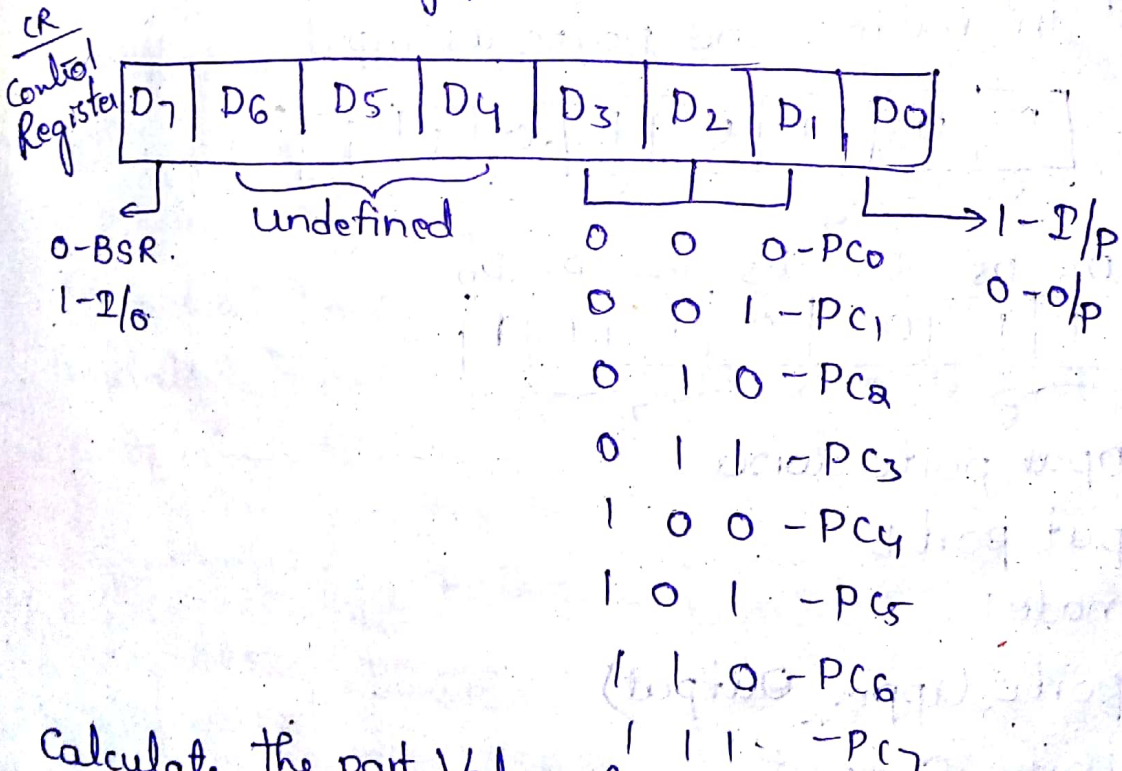 CR
Control
Register
D7 D6 D5 D4 D3 D2 D1 D0
undefined
0-BSR.
1-I/O
0 0 0-PC0
0 0 1-PC1
0 1 0-PC2
0 1 1-PC3
1 0 0-PC4
1 0 1-PC5
1 1 0-PC6
1 1 1-PC7
1-I/P
0-O/P
Calculate the port